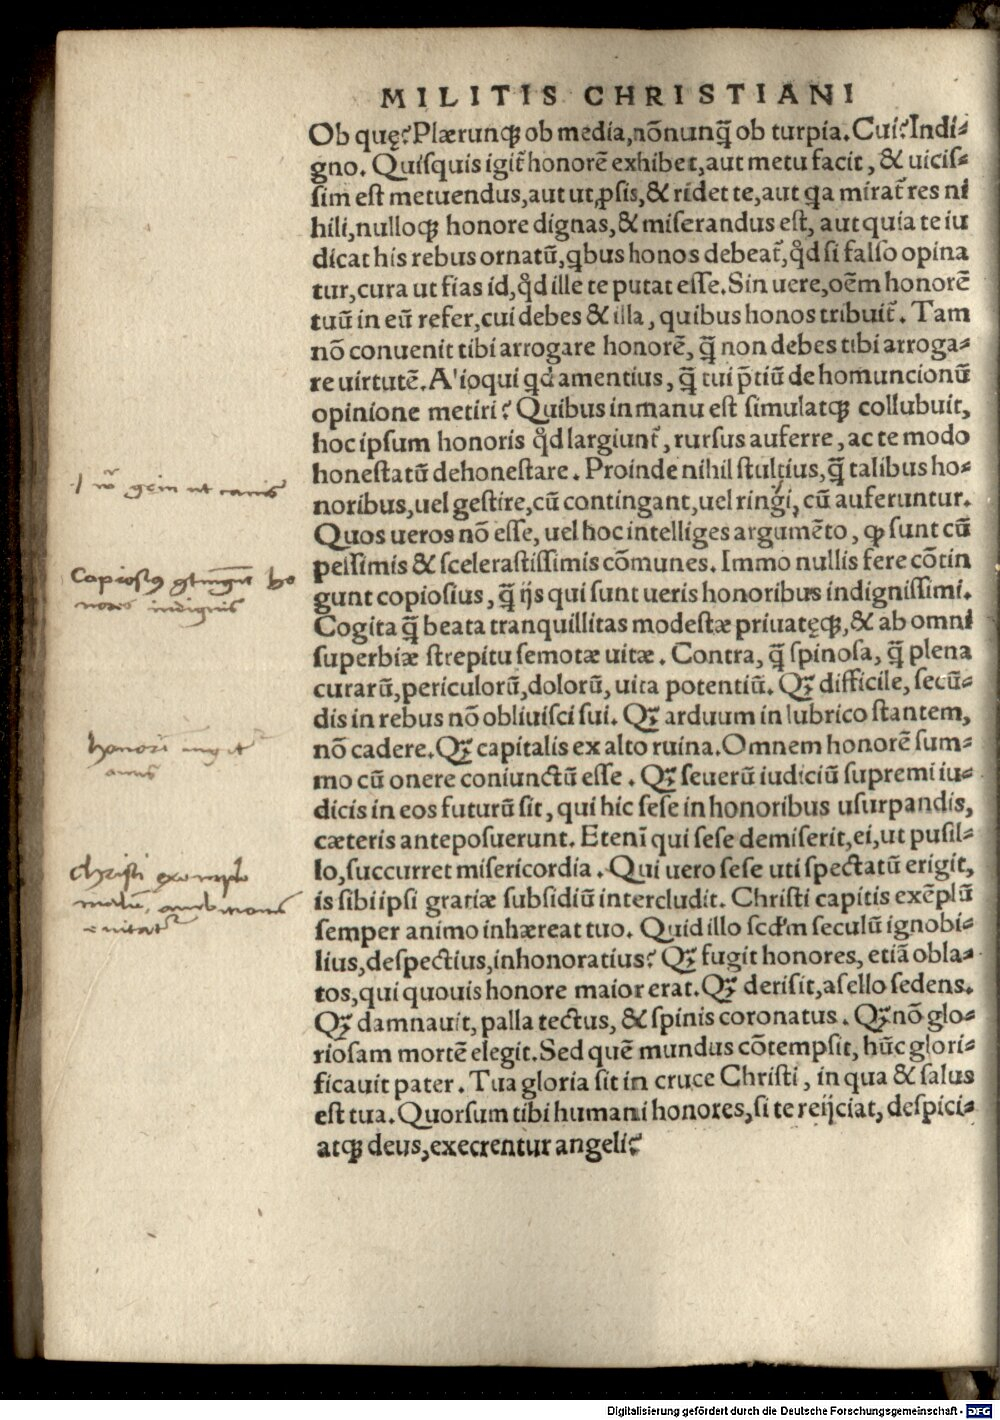 MILITIS CHRISTIANI
Ob quę? Plærunqꝫ ob media, nōnunq̄ ob turpia. Cui? Indi-
gno. Quisquis igit̃ honorē exhibet, aut metu facit, & uicis-
sim est metuendus, aut ut ꝓsis, & ridet te, aut ꝗa mirat̃ res ni
hili, nulloqꝫ honore dignas, & miserandus est, aut quia te iu
dicat his rebus ornatū, ꝗbus honos debeat̃, qđ si falso opina
tur, cura ut fias id, qđ ille te putat esse. Sin uere, oēm honorē
tuū in eū refer, cui debes & illa, quibus honos tribuit̃. Tam
nō conuenit tibi arrogare honorē, q̄ non debes tibi arroga-
re uirtutē. Alioqui ꝗd amentius, q̄ tui p̄tiū de homuncionū
opinione metiri? Quibus in manu est simulatqꝫ collubuit,
hoc ipsum honoris qđ largiunt̃, rursus auferre, ac te modo
honestatū dehonestare. Proinde nihil stultius, q̄ talibus ho-
noribus, uel gestire, cū contingant, uel ringi, cū auferuntur.
Quos ueros nō esse, uel hoc intelliges argumēto, ꝙ sunt cū
pessimis & scelerastissimis cōmunes. Immo nullis fere cōtin
gunt copiosius, q̄ ijs qui sunt ueris honoribus indignissimi.
Cogita q̄ beata tranquillitas modestæ priuatęqꝫ, & ab omni
superbiæ strepitu semotæ uitæ. Contra, q̄ spinosa, q̄ plena
curarū, periculorū, dolorū, uita potentiū. Qꝫ difficile, secū-
dis in rebus nō obliuisci sui. Qꝫ arduum in lubrico stantem,
nō cadere. Qꝫ capitalis ex alto ruina. Omnem honorē sum-
mo cū onere coniunctū esse. Qꝫ seuerū iudiciū supremi iu-
dicis in eos futurū sit, qui hic sese in honoribus usurpandis,
cæteris anteposuerunt. Etenī qui sese demiserit, ei, ut pusil-
lo, succurret misericordia. Qui uero sese uti spectatū erigit,
is sibi ipsi gratiæ subsidiū intercludit. Christi capitis exēplū
semper animo inhæreat tuo. Quid illo scđm seculū ignobi-
lius, despectius, inhonoratius? Qꝫ fugit honores, etiā obla-
tos, qui quouis honore maior erat. Qꝫ derisit, asello sedens.
Qꝫ damnauit, palla tectus, & spinis coronatus. Qꝫ nō glo-
riosam mortē elegit. Sed quē mundus cōtempsit, hūc glori-
ficauit pater. Tua gloria sit in cruce Christi, in qua & salus
est tua. Quorsum tibi humani honores, si te reijciat, despici-
atqꝫ deus, execrentur angeli?
ut canis
Copiosius ho
nores indignis
honori
onus
christi exemplo
ambitionis
Digitalisierung gefördert durch die Deutsche Forschungsgemeinschaft - DFG